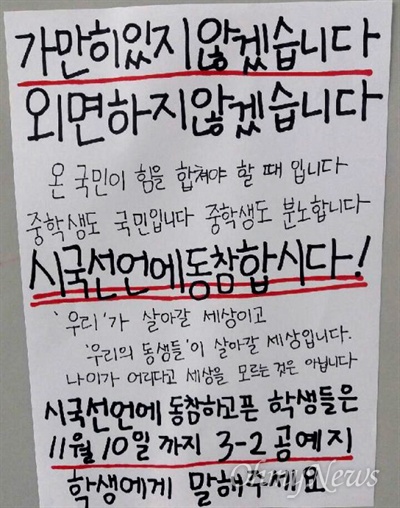 가만히있지않겠습니다
외면하지않겠습니다
온 국민이 힘을 합쳐야 할 때 입니다
중학생도 국민입니다 중학생도 분노합니다
시국선언에동참합시다!
'우리'가 살아갈 세상이고
'우리의 동생들'이 살아갈 세상입니다.
나이가 어리다고 세상을 모르는것은 아닙니다
시국선언에 동참하고픈 학생들은
11월 10일 까지 3-2 공예지
학생에게 말해주세요
OhmyNews